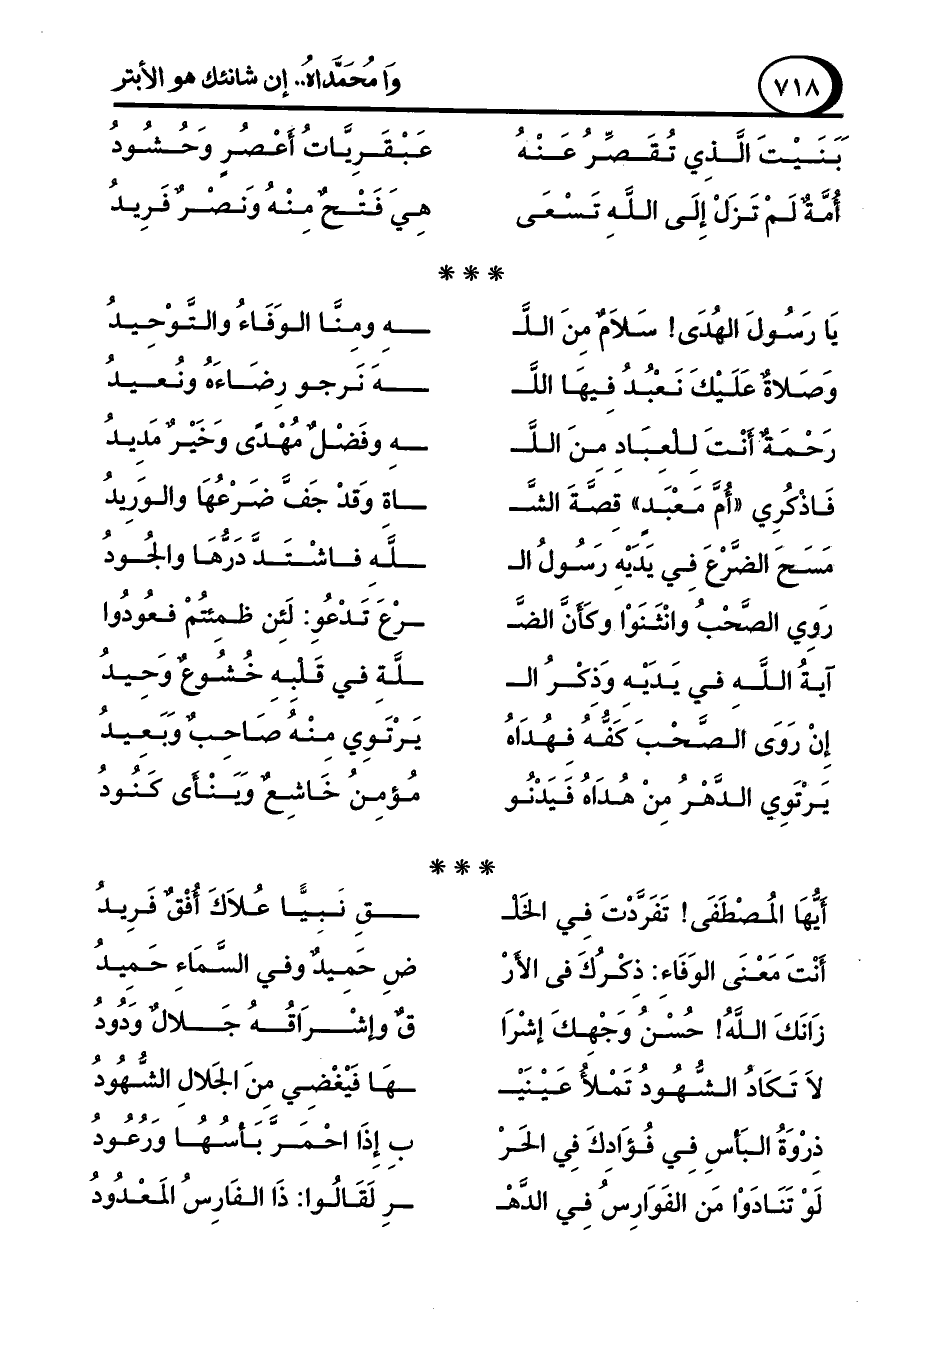 ٧١٨ وَا مُحَمَّدَاهُ.. إن شانئك هو الأبتر
بَنَيْتَ الَّذِي تُقَصِّرُ عَنْهُ عَبْقَرِيَّاتُ أَعْصُرٍ وَحُشُودُ
أُمَّةٌ لَمْ تَزَلْ إِلَى اللَّهِ تَسْعَى هِيَ فَتْحٌ مِنْهُ وَنَصْرٌ فَرِيدُ
***
يَا رَسُولَ الهُدَى! سَلاَمٌ مِنَ اللَّـ ـهِ ومِنَّا الوَفَاءُ والتَّوْحِيدُ
وَصَلاةٌ عَلَيْكَ نَعْبُدُ فِيهَا اللَّـ ـهَ نَرجو رِضَاءَهُ ونُعِيدُ
رَحْمَةٌ أَنْتَ لِلْعِبَادِ مِنَ اللَّـ ـهِ وفَضْلٌ مُهْدًى وَخَيْرٌ مَدِيدُ
فَاذْكُرِي «أُمَّ مَعْبَدٍ» قِصَّةَ الشَّـ ـاةِ وَقَدْ جَفَّ ضَرْعُهَا والوَرِيدُ
مَسَحَ الضَّرْعَ فِي يَدَيْهِ رَسُولُ الـ ـلَّهِ فاشْتَدَّ دَرُّهَا والجُودُ
رَوِيَ الصَّحْبُ وانْثَنَوْا وكَأَنَّ الضَّـ ـرْعَ تَدْعُو: لَئِن ظَمِئتُمْ فَعُودُوا
آيَةُ اللَّهِ فِي يَدَيْهِ وَذِكْرُ الـ ـلَّةِ فِي قَلْبِهِ خُشُوعٌ وَحِيدُ
إِنْ رَوَى الصَّحْبَ كَفُّهُ فَهُدَاهُ يَرْتَوِي مِنْهُ صَاحِبٌ وَبَعِيدُ
يَرْتَوِي الدَّهْرُ مِنْ هُدَاهُ فَيَدْنُو مُؤمِنٌ خَاشِعٌ وَيَنْأَى كَنُودُ
***
أَيُّهَا المُصْطَفَى! تَفَرَّدْتَ فِي الخَلْـ ـقِ نَبِيًّا عُلاَكَ أُفْقٌ فَرِيدُ
أَنْتَ مَعْنَى الوَفَاءِ: ذِكْرُكَ فِي الأَرْ ضِ حَمِيدٌ وفِي السَّمَاءِ حَمِيدُ
زَانَكَ اللَّهُ! حُسْنُ وَجْهِكَ إِشْرَا قٌ وإِشْرَاقُهُ جَلالٌ وَدُودُ
لاَ تَكَادُ الشُّهُودُ تَملأُ عَيْنَيْـ ـهَا فَيُغْضِي مِنَ الجَلالِ الشُّهُودُ
ذِرْوَةُ البَأْسِ فِي فُؤَادِكَ فِي الحَرْ بِ إِذَا احْمَرَّ بَأسُهَا وَرُعُودُ
لَوْ تَنَادَوْا مَنِ الفَوَارِسُ فِي الدَّهْـ ـرِ لَقَالُوا: ذَا الفَارِسُ المَعْدُودُ